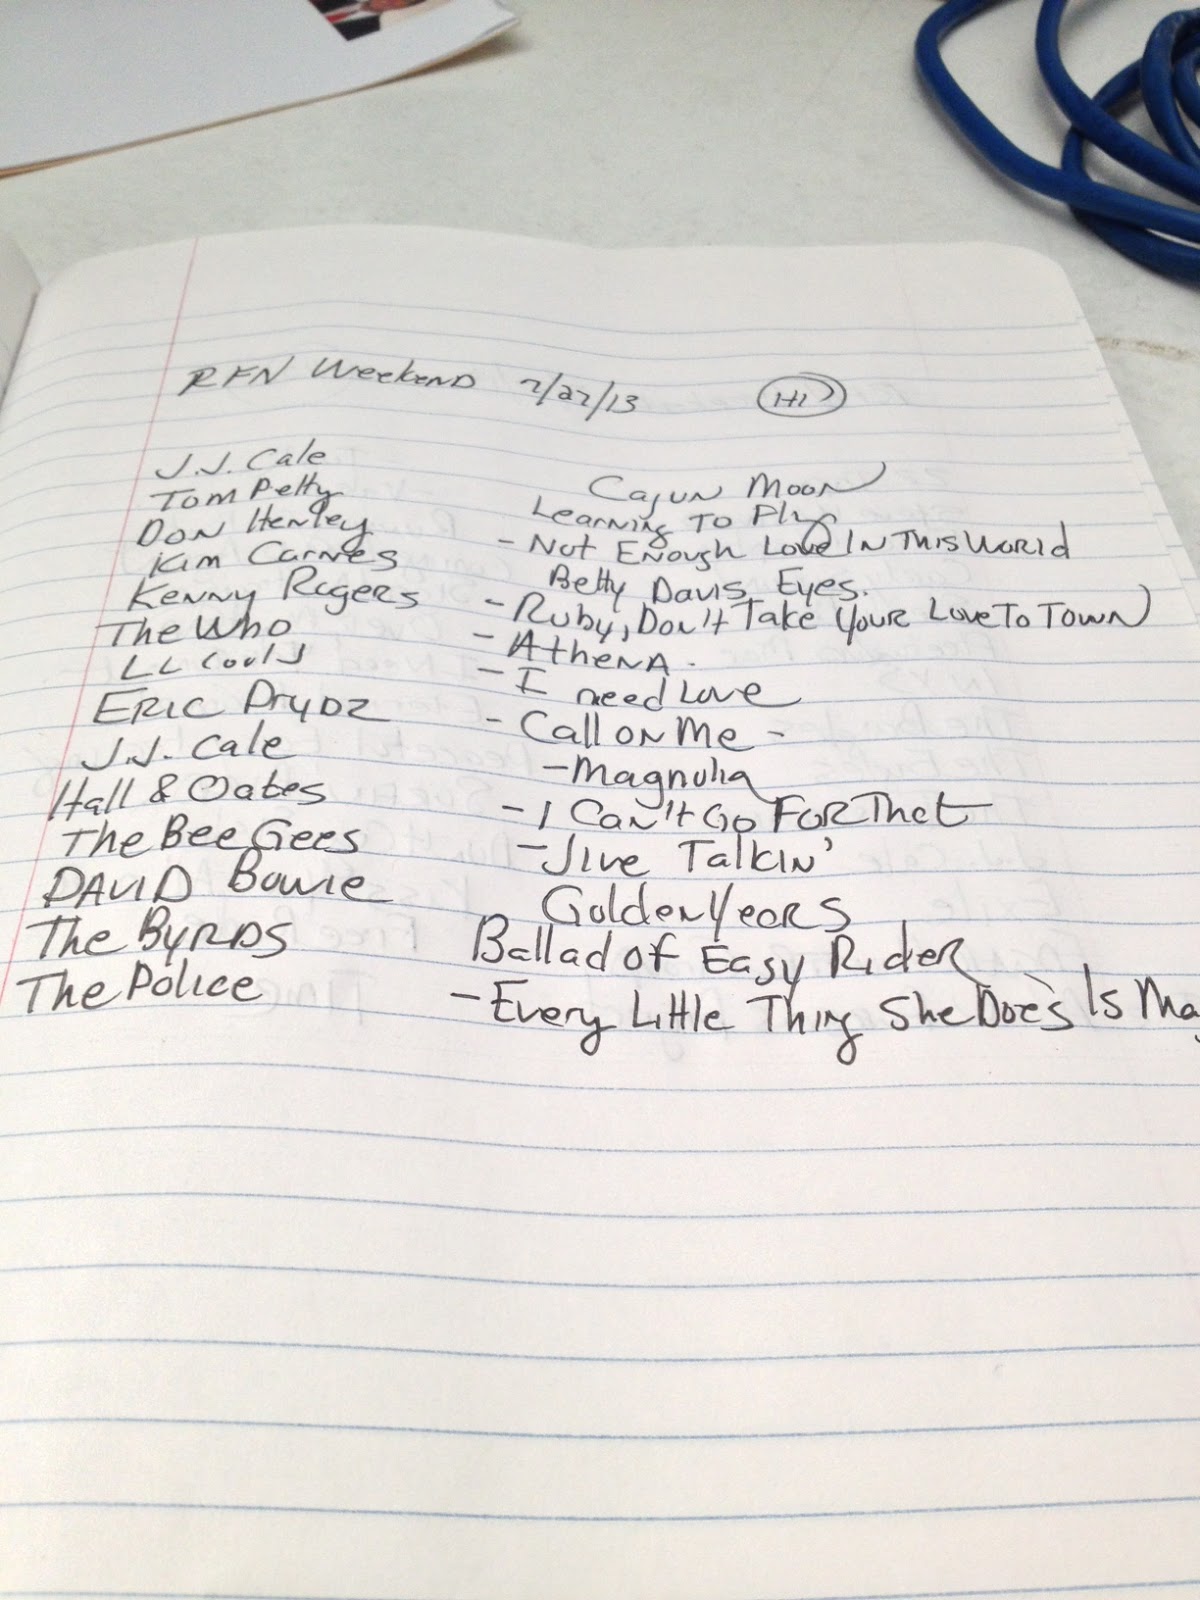 RFN Weekend 7/27/13 H1
J.J. Cale Cajun Moon
Tom Petty Learning To Fly
Don Henley - Not Enough Love In This World
Kim Carnes Betty Davis Eyes.
Kenny Rogers - Ruby, Don't Take Your Love To Town
The Who - Athena -
LL Cool J - I need Love
Eric Prydz - Call on Me -
J.J. Cale - Magnolia
Hall & Oates - I Can't Go For That
The Bee Gees - Jive Talkin'
David Bowie Golden Years
The Byrds Ballad of Easy Rider
The Police - Every Little Thing She Does Is Ma